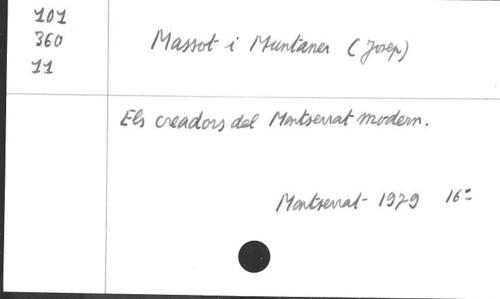 101
360
11
Massot i Muntaner (Josep)
Els creadors del Montserrat modern.
Montserrat - 1979 16º